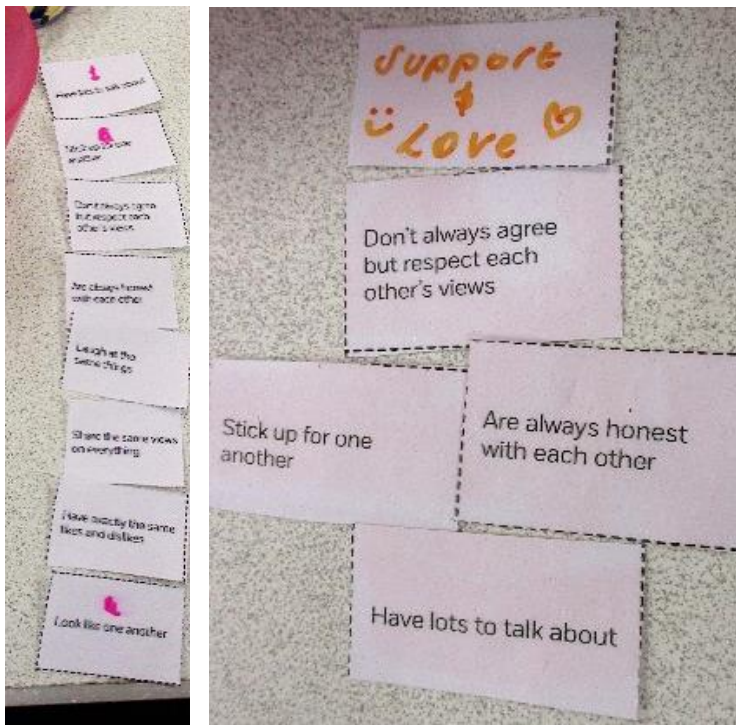 Have lots to talk about
Stick up for one
another
Don't always agree
but respect each
other's views
Are always honest
with each other
Laugh at the
same things
Share the same views
on everything
Have exactly the same
likes and dislikes
Look like one another
Support
&
Love
Don't always agree
but respect each
other's views
Stick up for one
another
Are always honest
with each other
Have lots to talk about